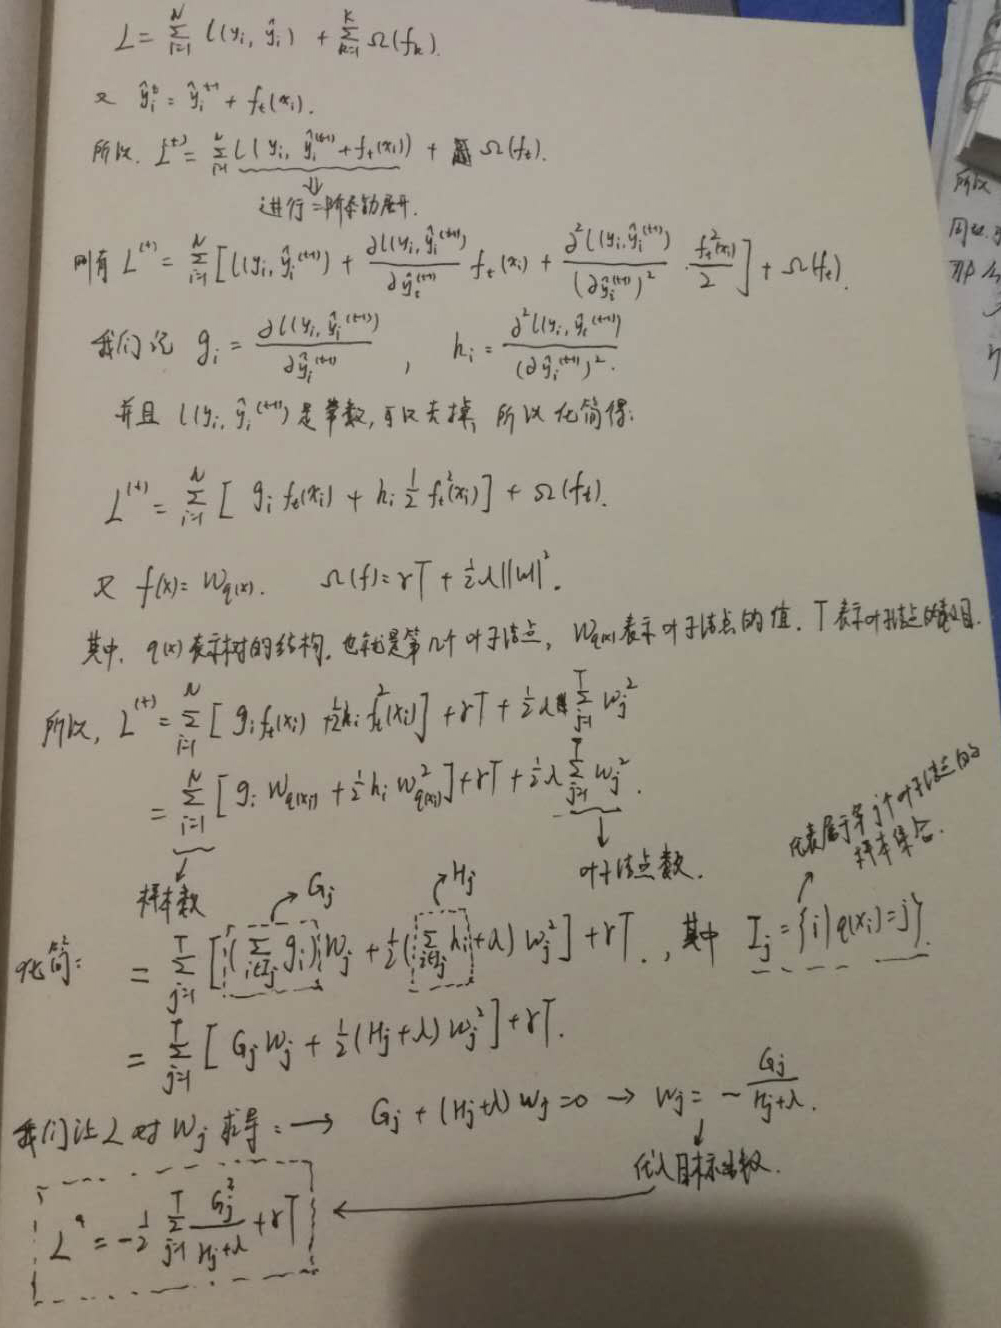 L = Σ_{i=1}^{N} l(y_i, ŷ_i) + Σ_{k=1}^{K} Ω(f_k).
又 ŷ_i^t = ŷ_i^{t-1} + f_t(x_i).
所以. L^{(t)} = Σ_{i=1}^{N} l(y_i, ŷ_i^{(t-1)} + f_t(x_i)) + Ω(f_t).
⇓
进行二阶泰勒展开.
则有 L^{(t)} = Σ_{i=1}^{N} [l(y_i, ŷ_i^{(t-1)}) + ∂l(y_i, ŷ_i^{(t-1)})/∂ŷ_i^{(t-1)} f_t(x_i) + ∂²l(y_i, ŷ_i^{(t-1)})/(∂ŷ_i^{(t-1)})² · f_t²(x_i)/2] + Ω(f_t).
我们记 g_i = ∂l(y_i, ŷ_i^{(t-1)})/∂ŷ_i^{(t-1)}, h_i = ∂²l(y_i, ŷ_i^{(t-1)})/(∂ŷ_i^{(t-1)})².
并且 l(y_i, ŷ_i^{(t-1)}) 是常数, 可以去掉, 所以化简得:
L^{(t)} = Σ_{i=1}^{N} [g_i f_t(x_i) + h_i ½ f_t²(x_i)] + Ω(f_t).
又 f(x) = W_{q(x)}. Ω(f) = γT + ½λ||w||².
其中, q(x)表示树的结构, 也就是第几个叶子结点, W_{q(x)}表示叶子结点的值. T表示叶子结点的数目.
所以, L^{(t)} = Σ_{i=1}^{N} [g_i f_t(x_i) + ½h_i f_t²(x_i)] + γT + ½λ Σ_{j=1}^{T} W_j²
= Σ_{i=1}^{N} [g_i W_{q(x_i)} + ½h_i W²_{q(x_i)}] + γT + ½λ Σ_{j=1}^{T} W_j².
样本数
叶子结点数.
代表属于第j个叶子结点的
样本集合.
G_j
H_j
化简: = Σ_{j=1}^{T} [(Σ_{i∈I_j} g_i) W_j + ½(Σ_{i∈I_j} h_i + λ) W_j²] + γT., 其中 I_j = {i|q(x_i)=j}.
= Σ_{j=1}^{T} [G_j W_j + ½(H_j + λ) W_j²] + γT.
我们让L对W_j求导: → G_j + (H_j+λ) W_j = 0 → W_j = - G_j/(H_j+λ).
代入目标函数.
L* = -½ Σ_{j=1}^{T} G_j²/(H_j+λ) + γT
所以